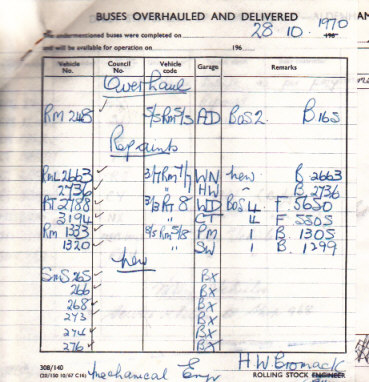 BUSES OVERHAULED AND DELIVERED
The undermentioned buses were completed on 28 10. 1970 196
and will be available for operation on 196
Vehicle No. Council No. Vehicle code Garage Remarks
Overhaul
RM 248 ✓ 5/5Rm5/5 AD BoS 2. B 165
Repaints
RmL 2663 ✓ 3/7Rm7/7 WN new B 2663
2736 ✓ " HW " B 2736
RT 2788 ✓ 3/3 RT 8 WD BoS 4 F 5650
3194 ✓ " CT 4 F 5505
Rm 1333 ✓ 5/5 Rm5/8 PM 1 B. 1305
1320 ✓ " SW 1 B 1299
New
SmS 265 ✓ BX
266 ✓ BX
268 ✓ BX
273 ✓ BX
274 ✓ BX
276 ✓ BX
30B/140
(28/130 10/67 C16) Mechanical Engr H W Bromack
ROLLING STOCK ENGINEER